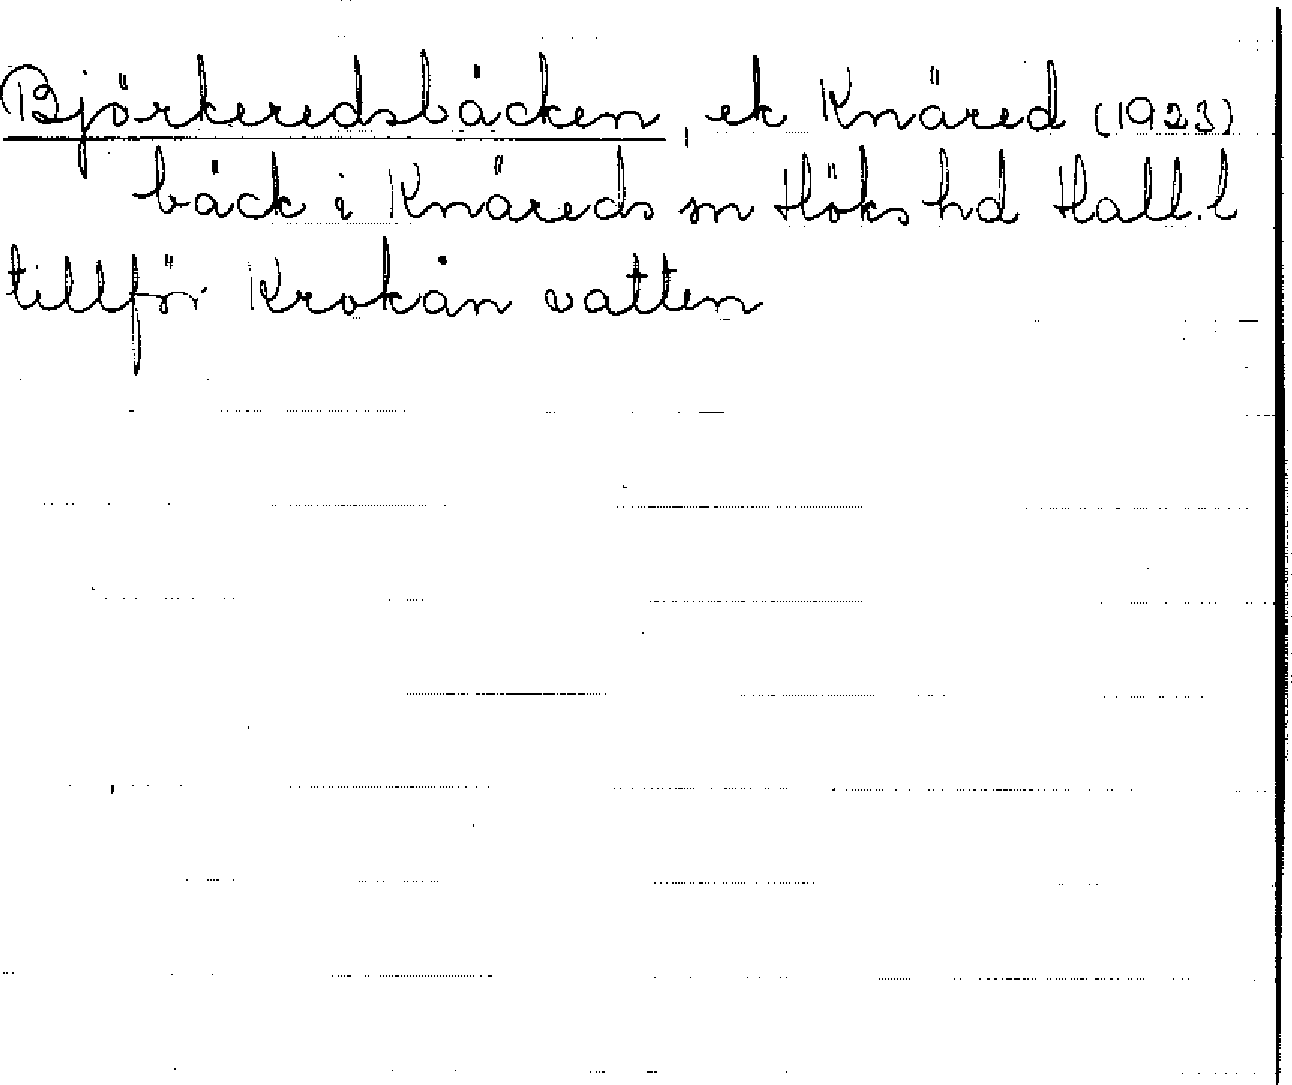 Björkeredsbäcken, ek Knäred (1923)
bäck i Knäreds sn Höks hd Hall. l
tillför Krokån vatten